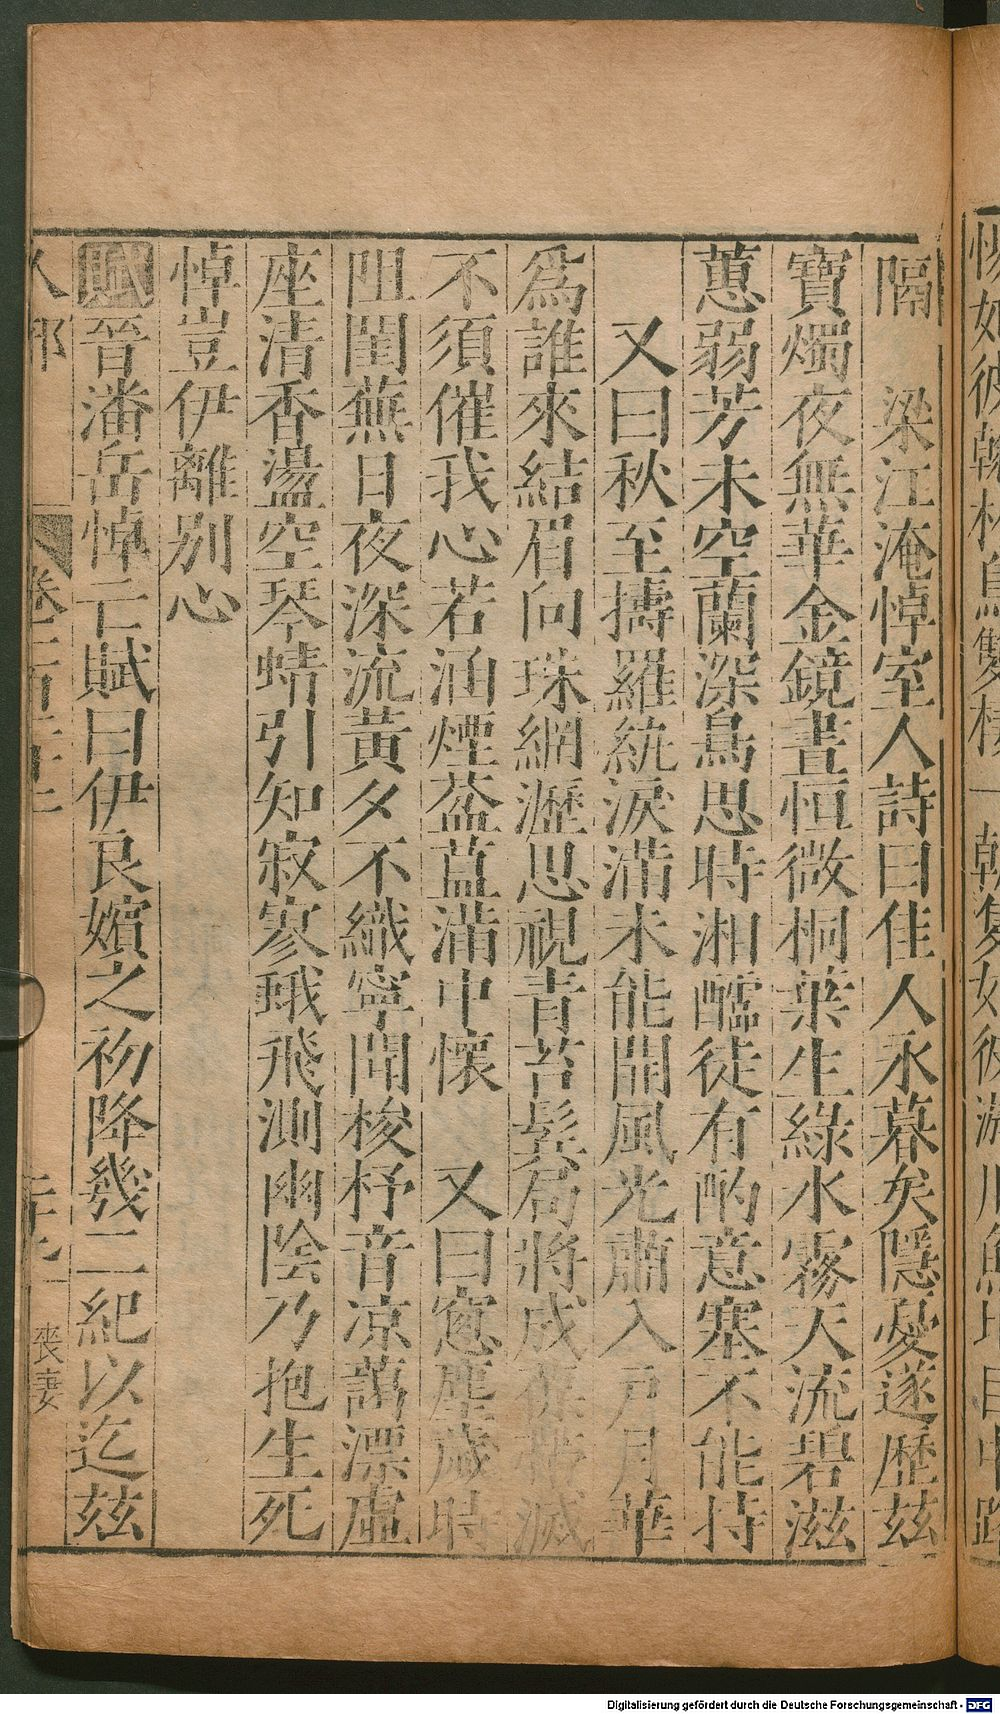 悵如彼翰林鳥雙棲一朝隻如彼游川魚比目中路
隔　梁江淹悼室人詩曰佳人永暮矣隱憂遂歷兹
寶燭夜無華金鏡晝恒微桐葉生綠水霧天流碧滋
蕙弱芳未空蘭深鳥思時湘醽徒有酌意塞不能持
又曰秋至擣羅紈淚滿未能開風光肅入戶月華
爲誰來結眉向珠網瀝思視青苔鬓局將成葆帶減
不須催我心若涵煙葢蒀滿中懷　又曰窓塵歲時
阻閨蕪日夜深流黃夕不織寧聞梭杼音凉藹漂虛
座清香盪空琴蜻引知寂寥蛾飛測幽陰乃抱生死
悼豈伊離別心
賦晉潘岳悼亡賦曰伊良嬪之初降幾二紀以迄兹
人部　卷　喪妻
Digitalisierung gefördert durch die Deutsche Forschungsgemeinschaft - DFG